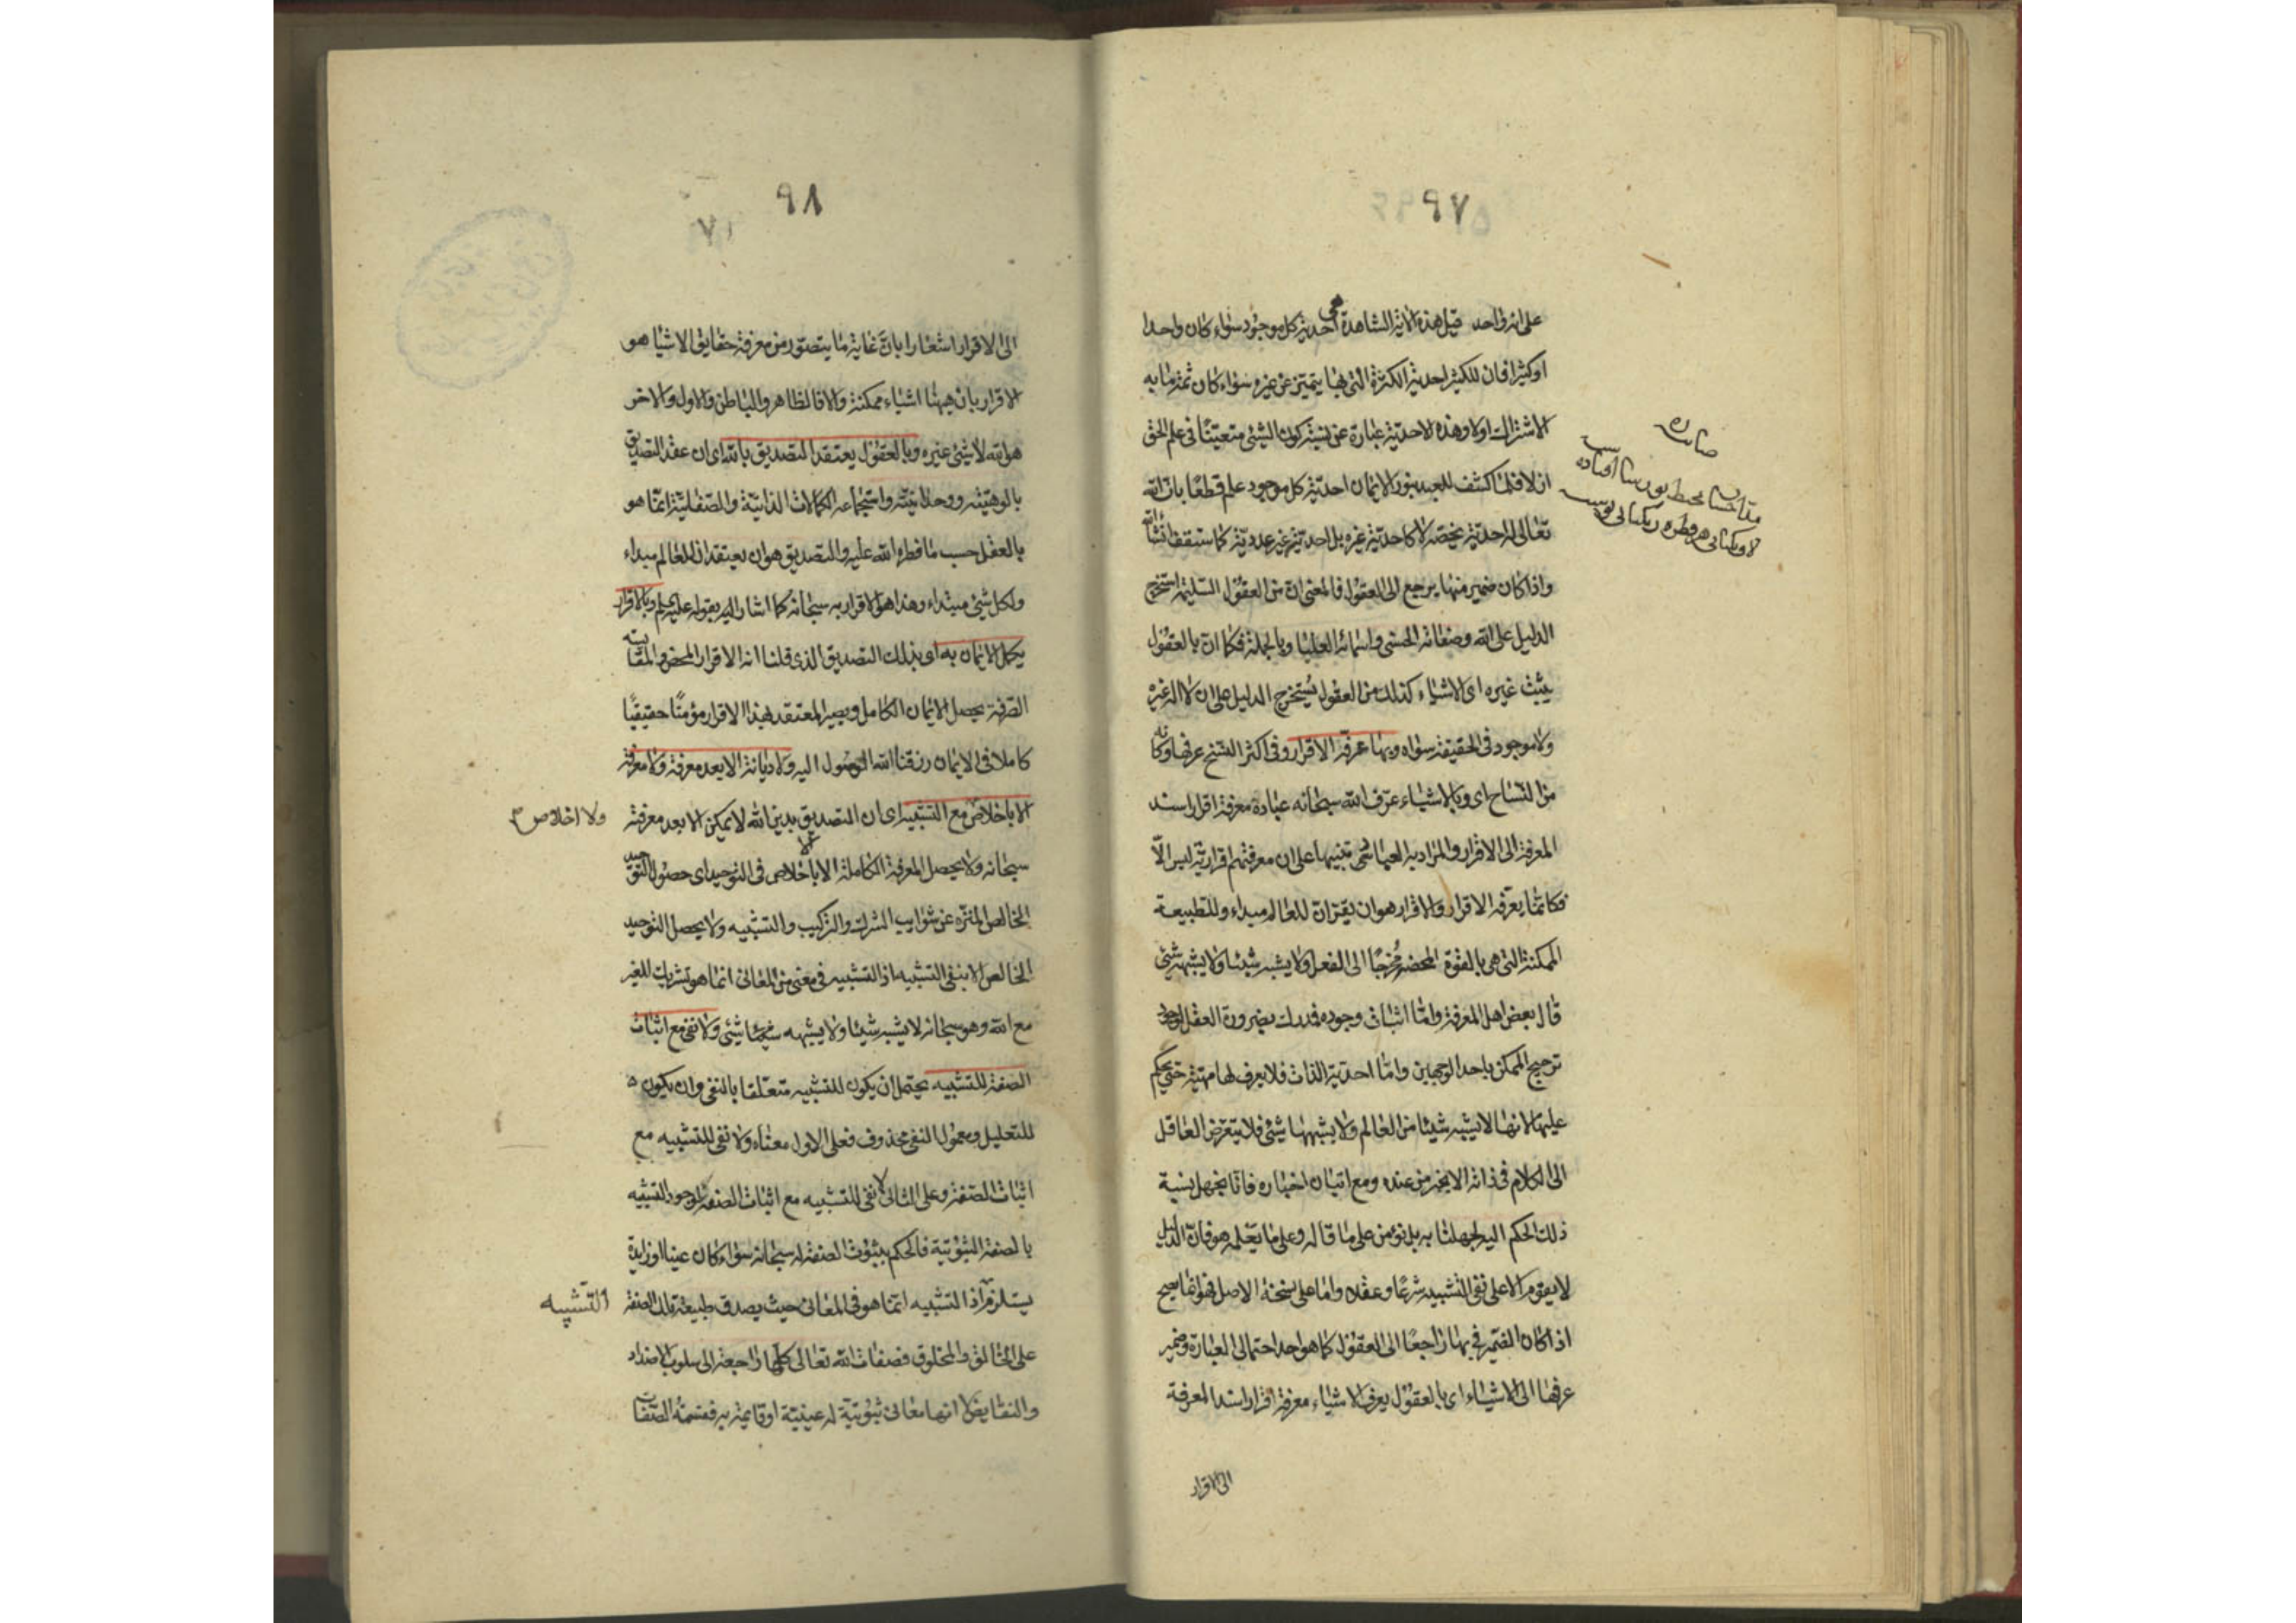 ٩٧
على انه واحد قيل هذه الآية الشاهدة هي احدية كل موجود سواء كان واحدا
او كثيرا فان للكثير احدية الكثرة التي بها يتميز عن غيره سواء كان ثمة ما به
الاشتراك اولا وهذه الاحدية عبارة عن نسبة كون الشئ متعينا في علم الحق
ازلا فلما كشف للعبد بنور الايمان احدية كل موجود علم قطعا بان الله
تعالى له احدية تخصه لا كاحدية غيره بل احدية غير عددية كما ستقف انشاء الله
واذا كان ضمير منها يرجع الى العقول فالمعنى ان من العقول السليمة استخرج
الدليل على الله وصفاته الحسنى واسمائه العليا وبالجملة فكما ان بالعقول
يثبت غيره اى الاشياء كذلك من العقول يستخرج الدليل على ان لا اله غيره
ولا موجود في الحقيقة سواه وبها عرفه الاقرار وفي اكثر النسخ عرفها وكانه
من النساخ اى وبالاشياء عرف الله سبحانه عباده معرفة اقرار اسند
المعرفة الى الاقرار والمراد به العباد تنبيها على ان معرفتهم اقرارية ليس الا
فكانما يعرفه الاقرار والاقرار هو ان يقر ان للعالم مبداء وللطبيعة
الممكنة التي هي بالقوة المحضة مخرجا الى الفعل ولا يشبه شيئا ولا يشبهه شئ
قال بعض اهل المعرفة واما اثبات وجوده فمدرك بضرورة العقل لوجود
ترجيح الممكن باحد الوجهين واما احدية الذات فلا يعرف لها مهية حتى يحكم
عليها لانها لا يشبه شيئا من العالم ولا يشبهها شئ فلا يتعرض العاقل
الى الكلام في ذاته الا بخبر من عنده ومع اتيان اخباره فانا نجهل نسبة
ذلك الحكم اليه لجهلنا به بل نؤمن على ما قاله وعلى ما يعلمه هو فان الدليل
لا يقوم الا على نفي التشبيه شرعا وعقلا واما على نسخة الاصل فهو انما يصح
اذا كان الضمير في بها راجعا الى العقول كما هو احد احتمالي العبارة وضمير
عرفها الى الاشياء اى بالعقول يعرف الاشياء معرفة اقرار اسند المعرفة
الى الاقرار
٩٨
٧١
الى الاقرار اشعارا بان غاية ما يتصور من معرفة حقايق الاشياء هو
الاقرار بان هيهنا اشياء ممكنة والا فالظاهر والباطن والاول والاخر
هو الله لا شئ غيره وبالعقول يعتقد التصديق بالله اى ان عقد التصديق
بالوهيته ووحدانيته واستجماعه الكمالات الذاتية والصفاتية انما هو
بالعقل حسب ما فطره الله عليه والتصديق هو ان يعتقد ان للعالم مبداء
ولكل شئ مبتداء وهذا هو الاقرار به سبحانه كما اشار اليه بقوله عليه السلم وبالاقرار
يكمل الايمان به اى بذلك التصديق الذي قلنا انه الاقرار المحض
الصرفة يحصل الايمان الكامل ويصير المعتقد بهذا الاقرار مؤمنا حقيقيا
كاملا في الايمان رزقنا الله الوصول اليه ولا ديانة الا بعد معرفة ولا معرفة
الا باخلاص مع التشبيه اى ان التصديق بدين الله لا يمكن الا بعد معرفته
ولا اخلاص
سبحانه ولا يحصل المعرفة الكاملة الا بالاخلاص في التوحيد اى حصول التوحيد
الخالص المنزه عن شوايب الشرك والتركيب والتشبيه ولا يحصل التوحيد
الخالص الا بنفي التشبيه اذ التشبيه في معنى من المعاني انما هو تشريك للغير
مع الله وهو سبحانه لا يشبه شيئا ولا يشبهه شئ ولا نفي مع اثبات
الصفة للتشبيه يحتمل ان يكون للتشبيه متعلقا بالنفي وان يكون
للتعليل ومعمول النفي محذوف فعلى الاول معناه ولا نفي للتشبيه مع
اثبات الصفة وعلى الثاني لا نفي للتشبيه مع اثبات الصفة لوجود التشبيه
بالصفة الثبوتية فالحكم بثبوت الصفة له سبحانه سواء كان عينا او زايدة
يستلزم اذ التشبيه انما هو في المعاني حيث يصدق طبيعة تلك الصفة
التشبيه
على الخالق والمخلوق فصفات الله تعالى كلها راجعة الى سلوب الاضداد
والنقايض لا انها معاني ثبوتية له عينية او قايمة به فقسمة الصفات